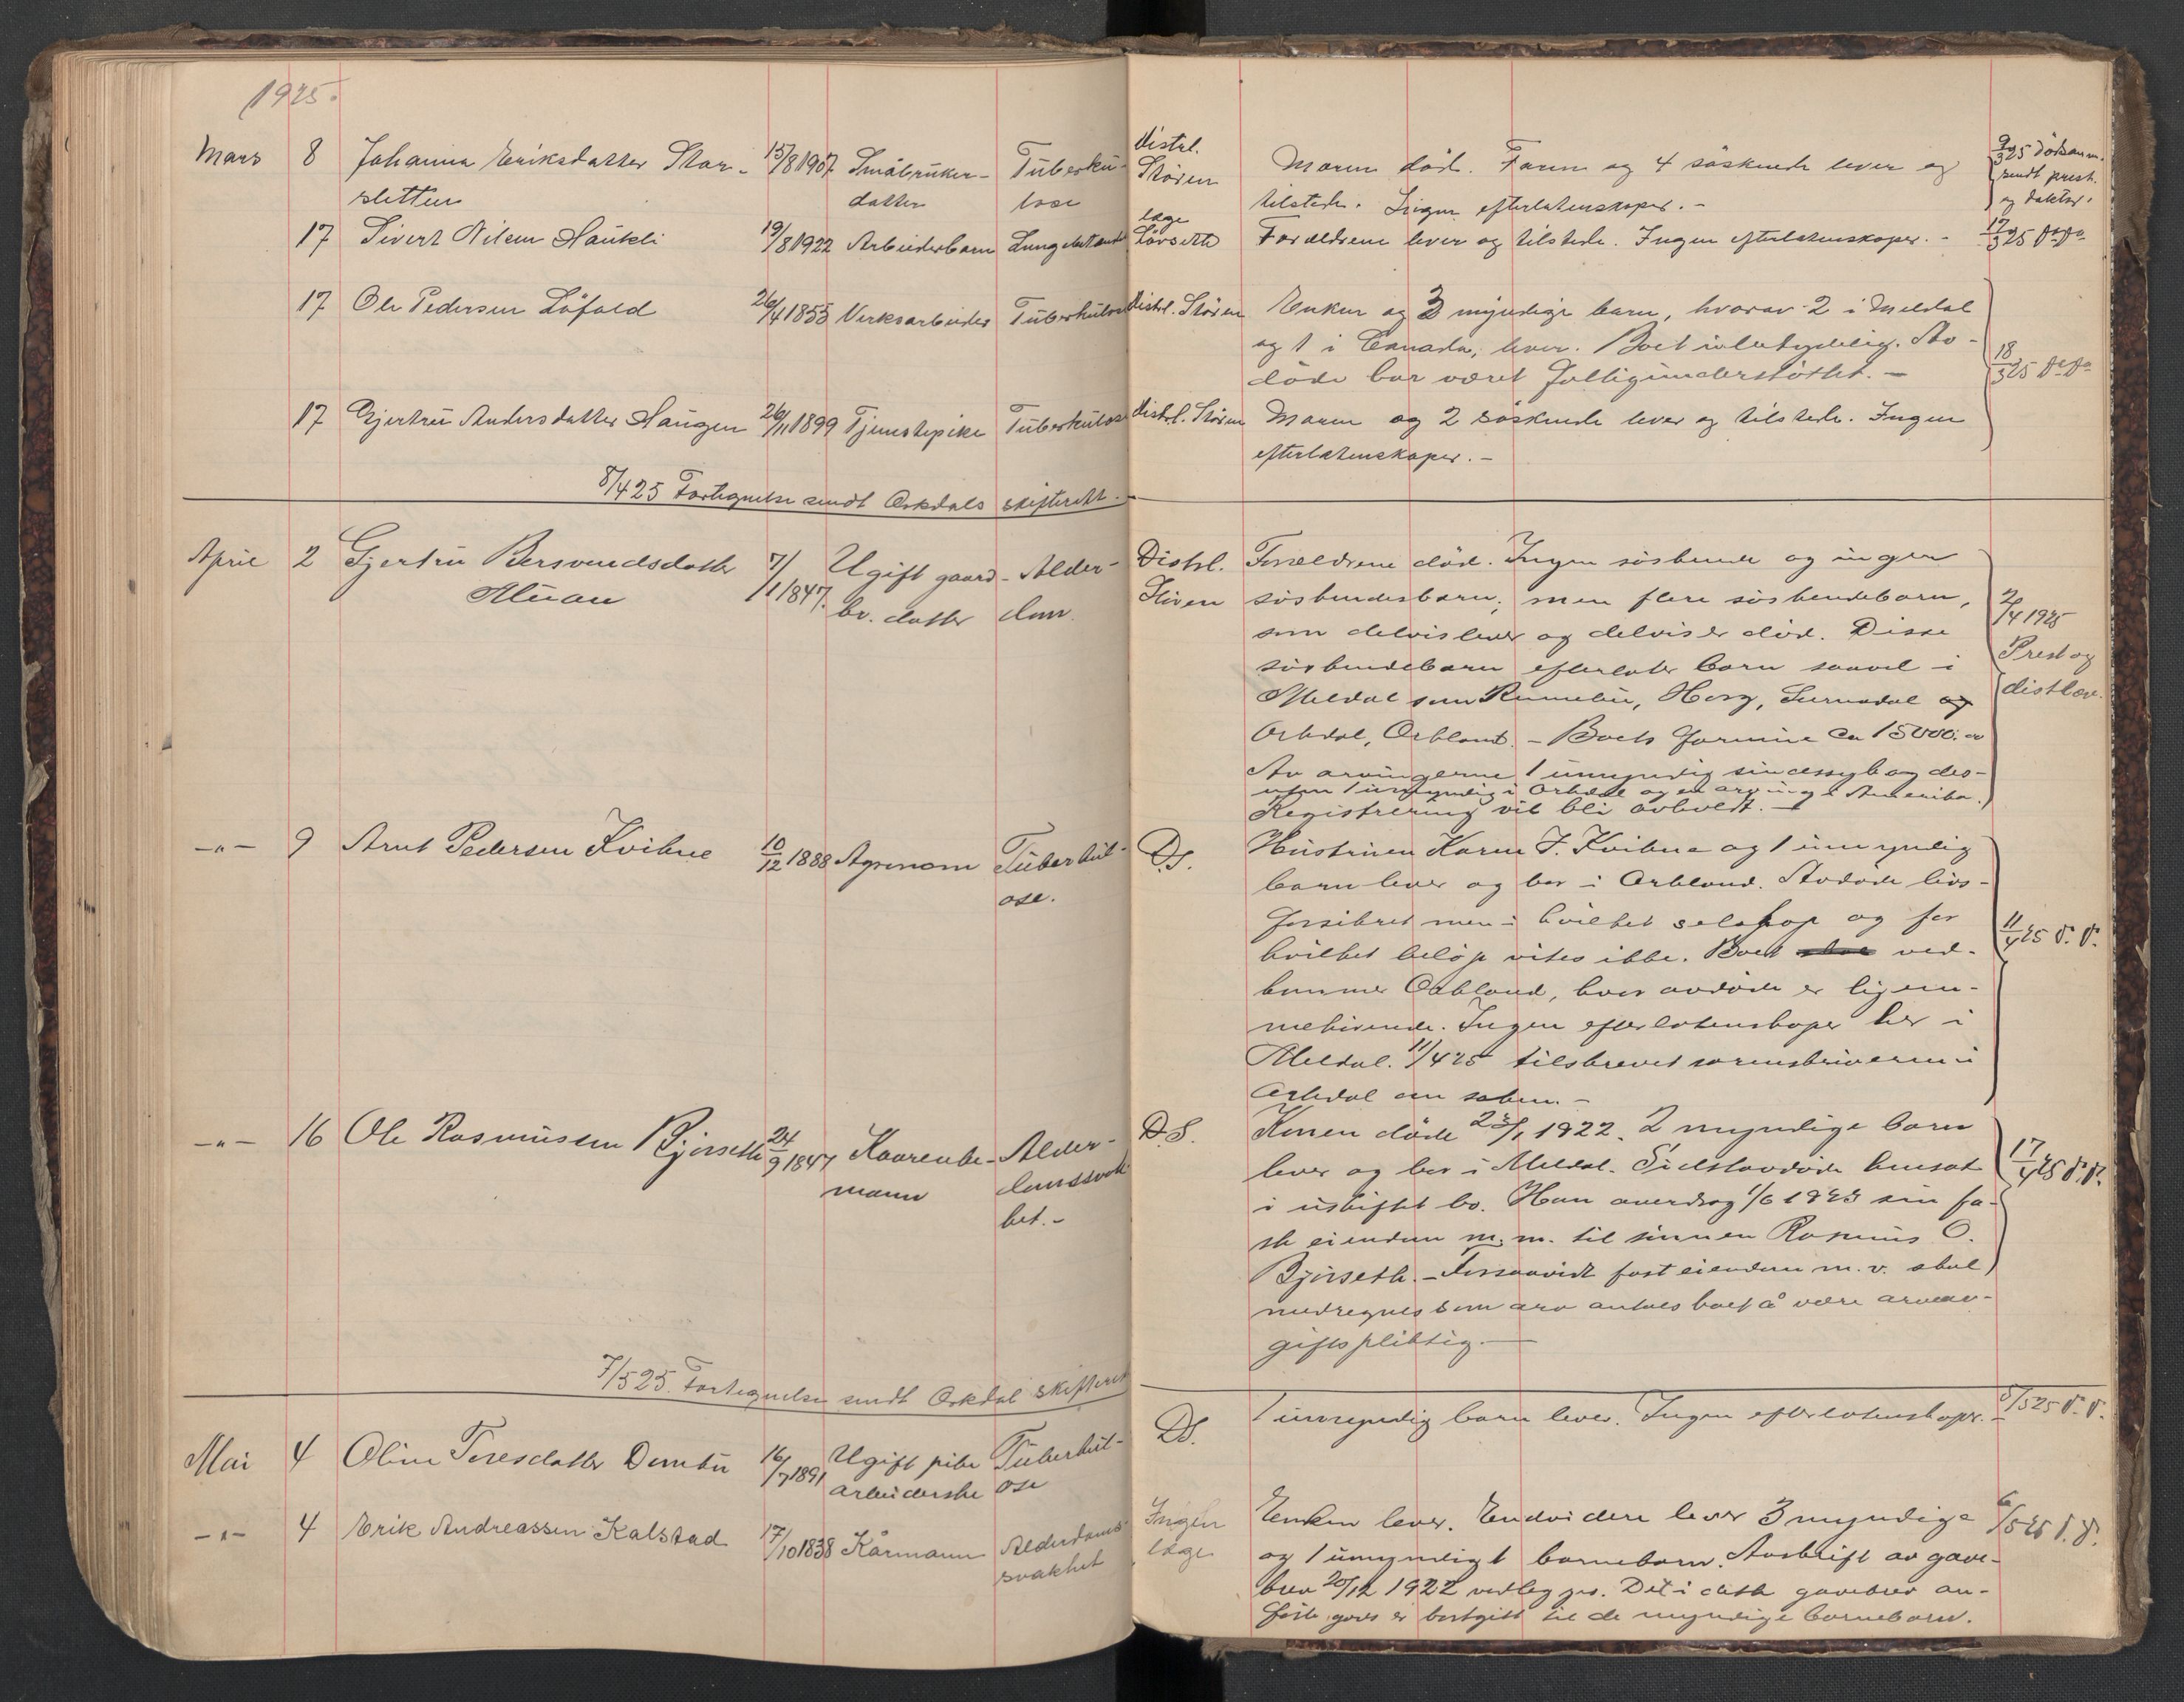 1925.
Mars 8 Johanna Eriksdatter Stor- 15/8 1907 Småbruker- Tuberku- distrl. Moren död. Faren og 4 söskende lever og 9/3 25 dödsanm.
sletten datter lose Stören tilstede. Ingen efterlatenskaper. - sendt prest. og doktor.
17 Sivert Nilsen Haukli 19/8 1922 Arbeiderbarn læge Lövseth Forældrene lever og tilstede. Ingen efterlatenskaper. - 17/3 25
17 Ole Pedersen Löfald 26/4 1855 Verksarbeider Tuberkulose distrl. Stören Enken og 3 myndige barn, hvorav 2 i Meldal
og 1 i Canada, lever. Boet ubetydelig. Av-
döde har været fattigunderstöttet. - 18/3 25
17 Gjertru Andersdatter Haugen 26/11 1899 Tjenestepike Tuberkulose distrl. Stören Moren og 2 söskende lever og tilstede. Ingen
efterlatenskaper. -
8/4 25 Fortegnelse sendt Orkdals skifterett.
April 2 Gjertru Bersvendsdatter 7/1 1847. Ugift gaard- Alder- Distrl. Forældrene död. Ingen söskende og ingen
br. datter dom. Stören söskendesbarn, men flere söskendebarn, 2/4 1925
som delvis lever og delvis er död. Disse Prest og
söskendebarn efterlater barn saavel i distlæ.
Meldal som Rennebu, Horg, Surnadal og
Orkdal, Orkland. - Boets formue ca 15000.00
Av arvingerne 1 umyndig sindssyk og des-
uten 1 umyndig i Orkdal og en arving i Amerika.
Registrering vil bli avholdt. -
-"- 9 Arnt Pedersen Kvikne 10/12 1888 Agronom Tuberkul- D.S. Hustruen Karen J. Kvikne og 1 umyndig
ose. barn lever og bor i Orkland. Avdöde livs-
forsikret men i hvilket selskap og for
hvilket belöp vites ikke. Boet ved- 11/4 25 d. d.
kommer Orkland, hvor avdöde er hjem-
mehörende. Ingen efterlatenskaper her i
Meldal. 11/4 25 tilskrevet sorenskriveren i
Orkdal om saken. -
-"- 16 Ole Rasmussen Bjørseth 24/9 1847 Kaarenke- Alder- D.S. Konen döde 1922. 2 myndige barn
mann domssvak- lever og bor i Meldal. Sidstavdöde hensat 17/4 25 d. d.
het. - i uskiftet bo. Han overdrog 1/6 1923 sin fa-
ste eiendom m. m. til sönnen Rasmus O.
Bjørseth. - Forsaavidt fast eiendom m. v. skal
medregnes som arv antaes boet å være arveav-
giftspliktig. -
7/5 25. Fortegnelse sendt Orkdal skifterett
Mai 4 Oline Toresdatter 16/7 1891 Ugift pike Tuberkul- D.S. 1 umyndig barn lever. Ingen efterlatenskaper. - 5/5 25 d. d.
arbeiderske ose
-"- 4 Erik Andreassen Kalstad 17/10 1838 Kårmann Alderdoms- Ingen Enken lever. Endvidere lever 3 myndige 6/5 25 d. d.
svakhet læge og 1 umyndigt barnebarn. Avskrift av gave-
brev 20/12 1922 vedlegges. Det i dette gavebrev an-
förte gods er bortgitt til de myndige barnebarn.